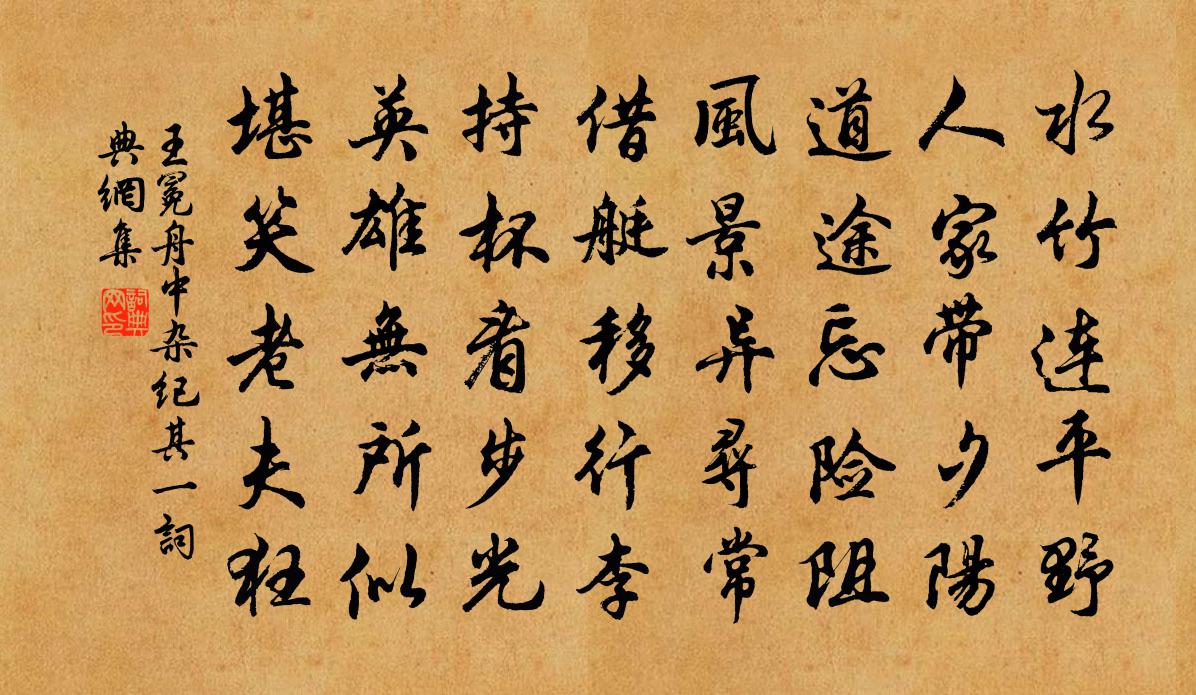 水竹连平野
人家带夕陽
道途忘险阻
風景异尋常
借艇移行李
持杯看步光
英雄無所似
堪笑老夫狂
王冕舟中杂纪其一詞
典網集
詞典网印